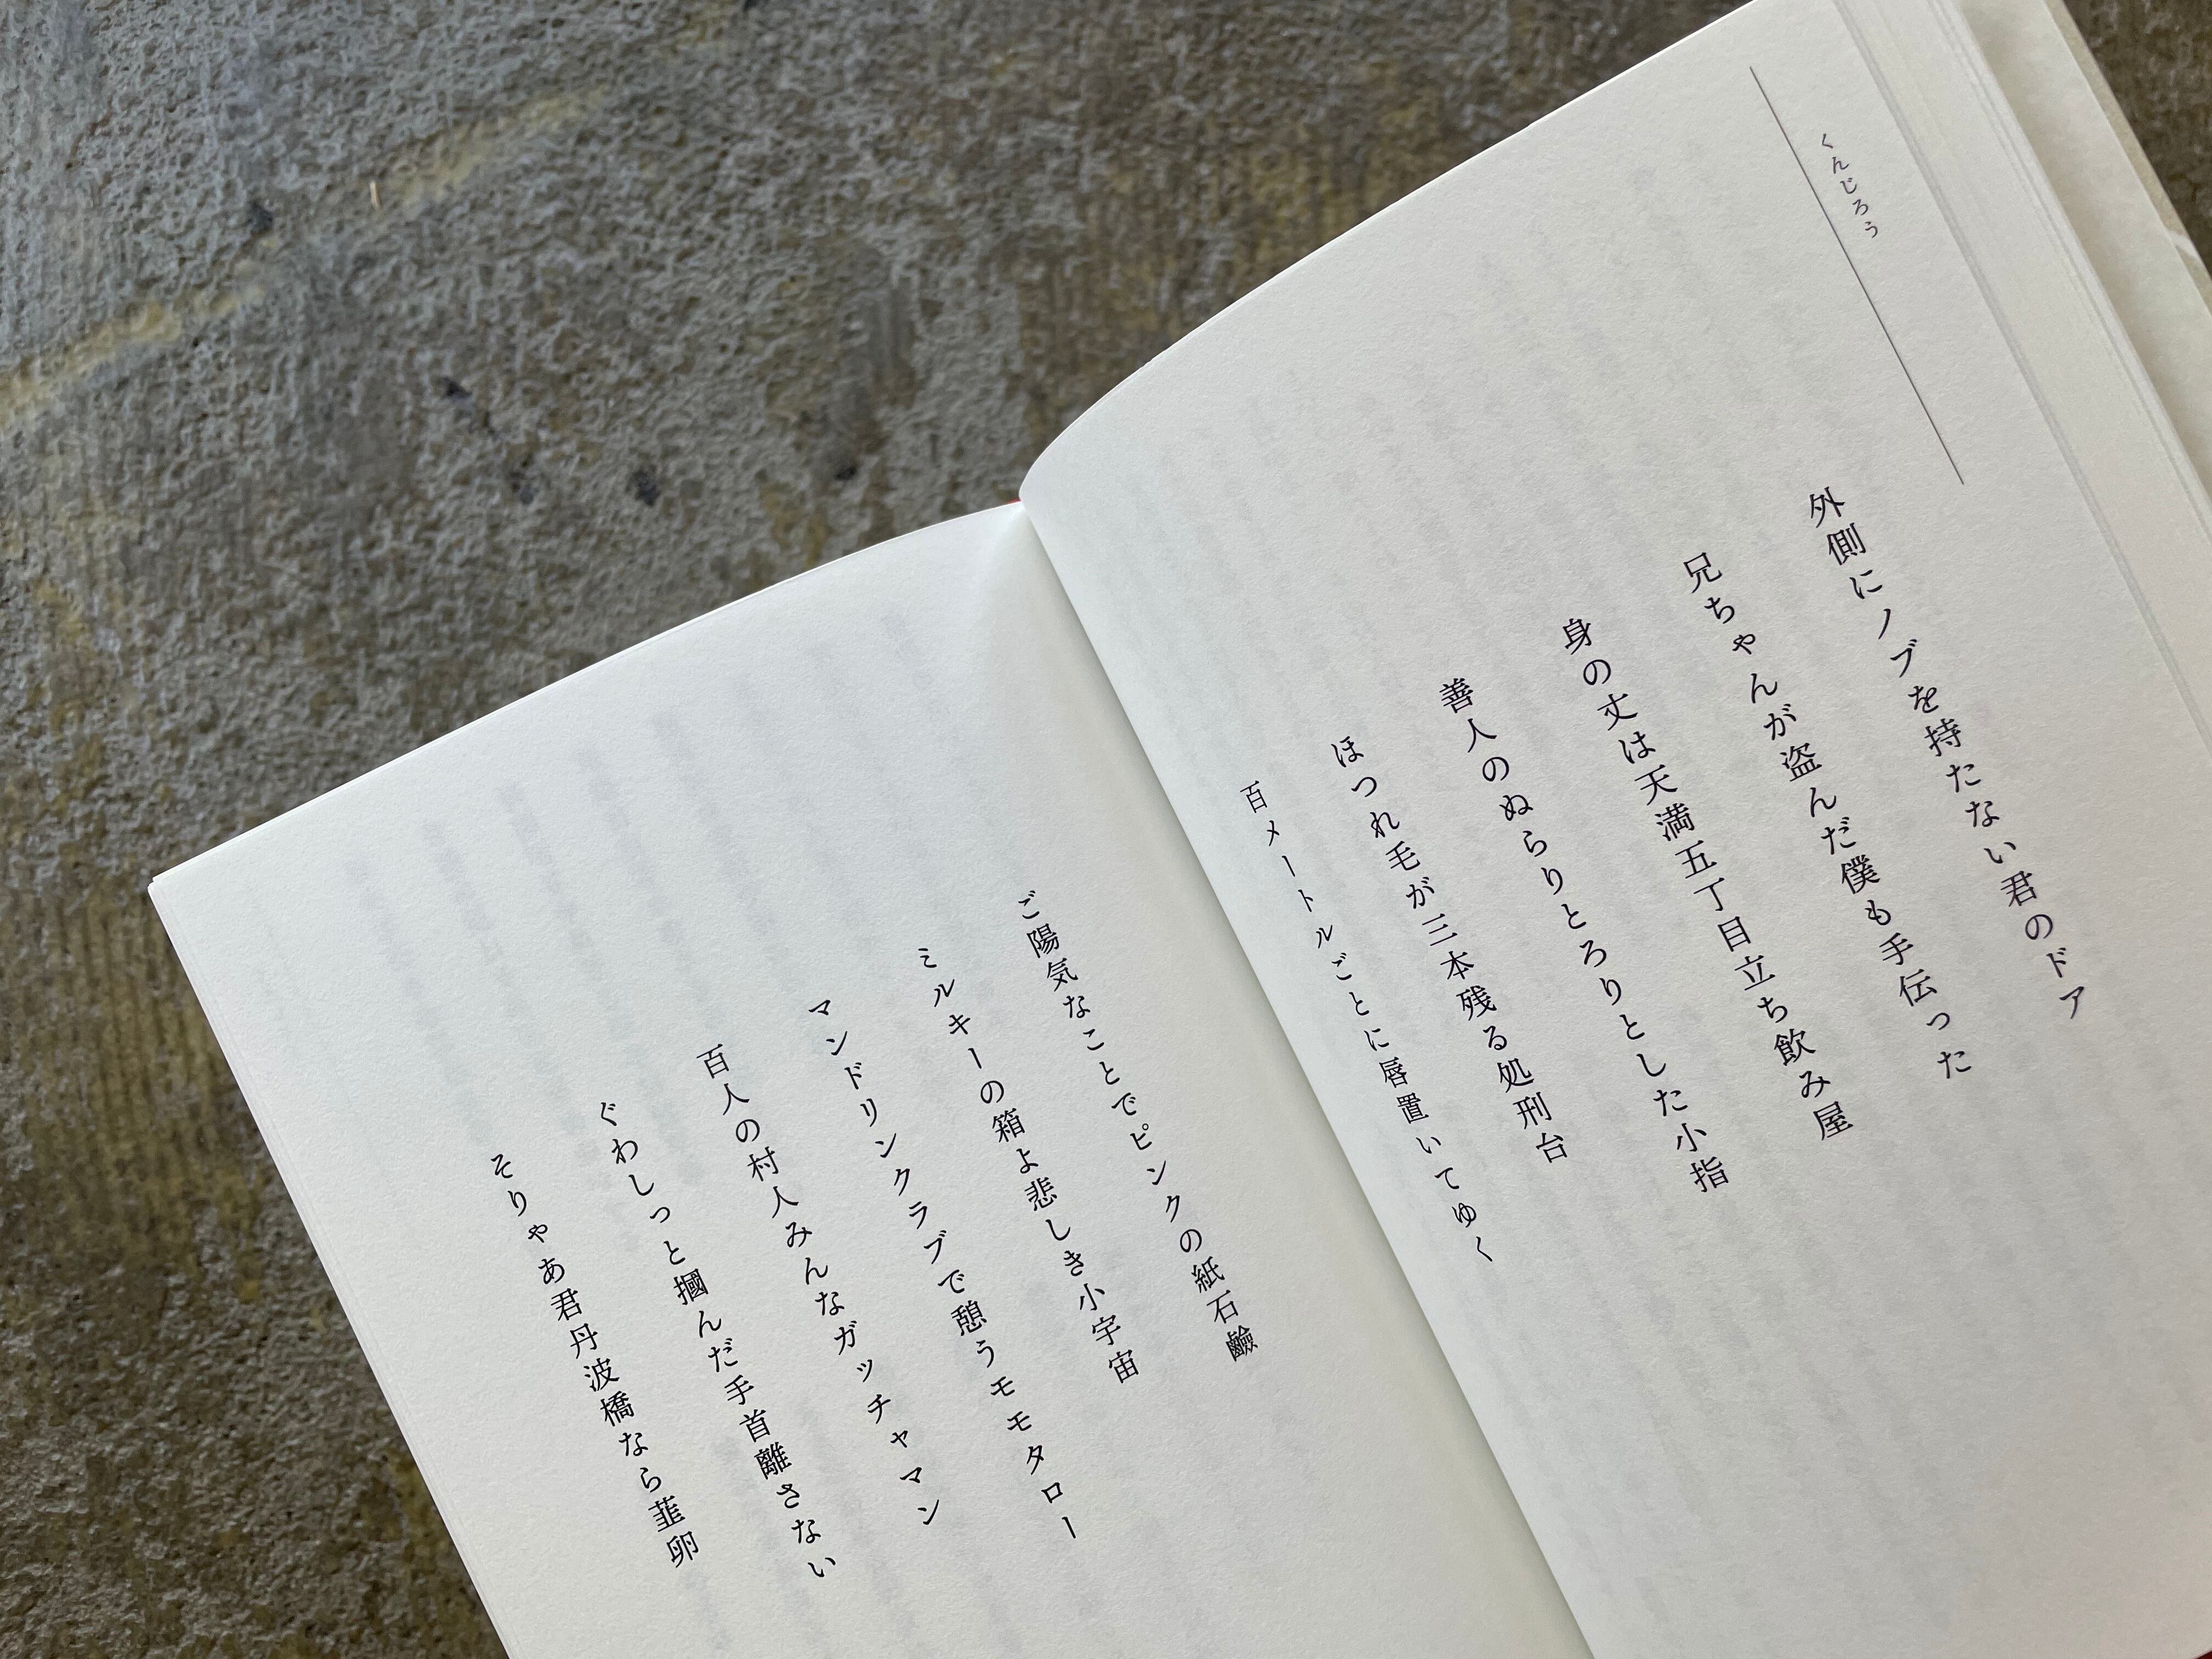 くんじろう
外側にノブを持たない君のドア
兄ちゃんが盗んだ僕も手伝った
身の丈は天満五丁目立ち飲み屋
善人のぬらりとろりとした小指
ほつれ毛が三本残る処刑台
百メートルごとに唇置いてゆく
ご陽気なことでピンクの紙石鹼
ミルキーの箱よ悲しき小宇宙
マンドリンクラブで憩うモモタロー
百人の村人みんなガッチャマン
ぐわしっと摑んだ手首離さない
そりゃあ君丹波橋なら韮卵